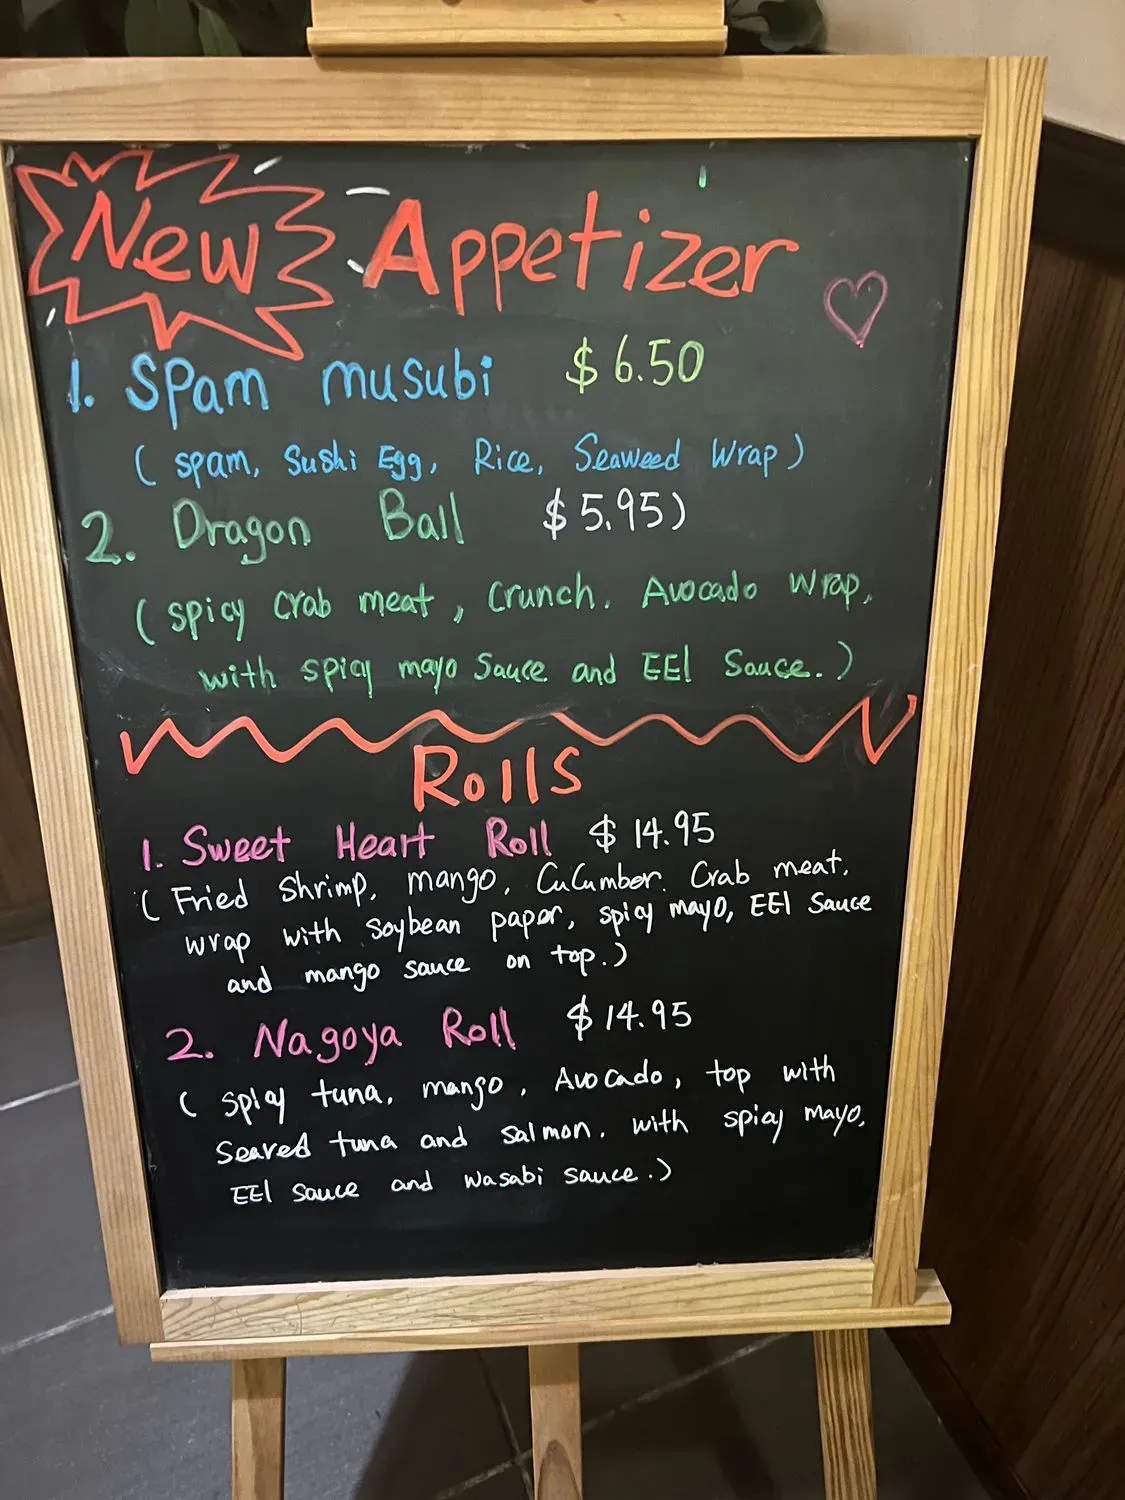 New Appetizer
1. Spam musubi $6.50
(spam, Sushi Egg, Rice, Seaweed Wrap)
2. Dragon Ball $5.95)
(spicy crab meat, Crunch. Avocado Wrap,
with spicy mayo Sauce and EEl Sauce.)
Rolls
1. Sweet Heart Roll $14.95
(Fried Shrimp, mango, CuCumber. Crab meat,
wrap with Soybean paper, spicy mayo, EEl Sauce
and mango sauce on top.)
2. Nagoya Roll $14.95
(spicy tuna, mango, Avocado, top with
Seared tuna and salmon. with spicy mayo,
EEl sauce and wasabi sauce.)